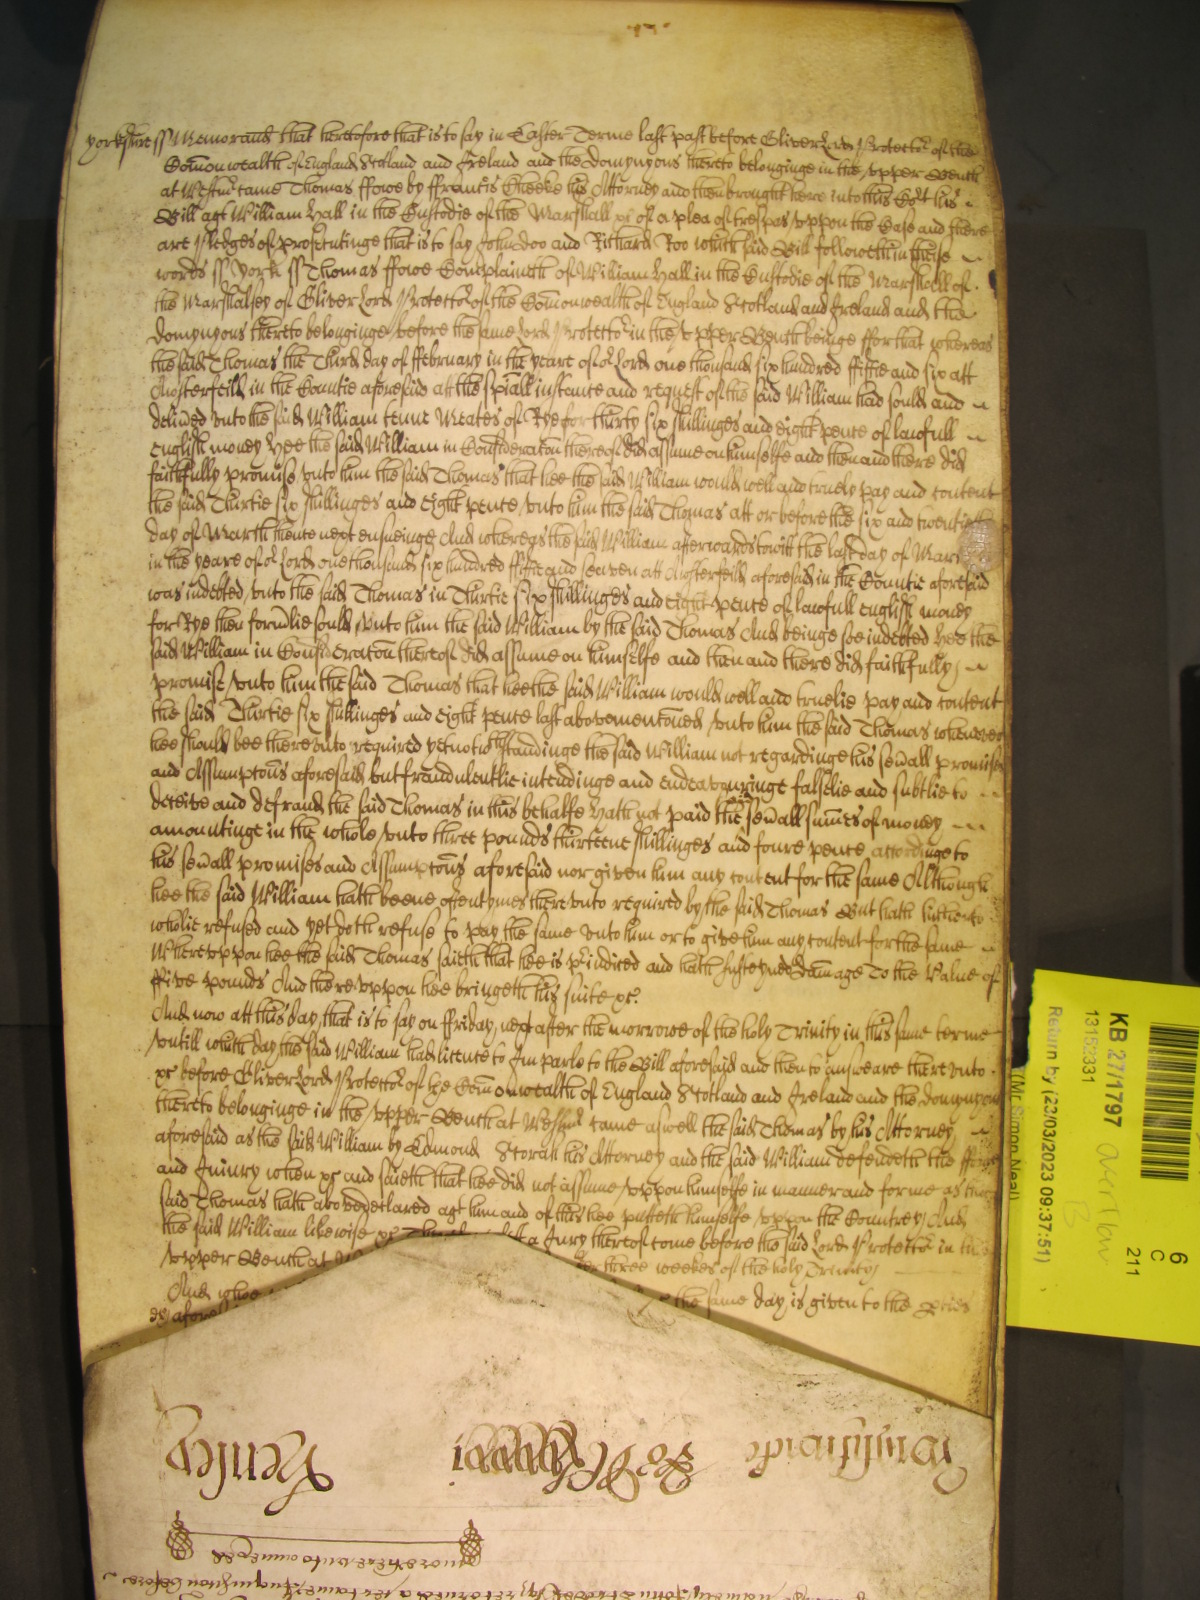 Yorkshire ss Memorand that heretofore that is to say in Easter Terme last past before Oliver Lord Protector of the
Comonwealth of England Scotland and Ireland and the domynyons thereto belonginge in the upper Bench
at Westmr came Thomas ffowe by ffrancis Cheeke his Attorney and then brought here into this Cort his
Bill agt William Hall in the Custodie of the Marshall &c of a plea of trespas uppon the Case and there
are pledges of prosecutinge that is to say John doo and Richard Roo which said Bill followeth in these
words ss York ss Thomas ffowe Complaineth of William Hall in the Custodie of the Marshall of
the Marshalsey of Oliver Lord Protector of the Comonwealth of England Scotland and Ireland and the
domynyons thereto belonginge before the same Lord Protector in the upper Bench beinge ffor that whereas
the said Thomas the Third day of ffebruary in the yeare of or Lord one thousand six hundred fiftie and six att
Austerfeild in the Countie aforesaid att the spiall instance and request of the said William had sould and
delived unto the said William tenne Meates of Rye for thirty six shillinges and eight pence of lawfull
English money Hee the said William in Consideracon thereof did assume on himselfe and then and there did
faithfully promise unto him the said Thomas that hee the said William would well and truely pay and content
the said Thirtie six shillinges and eight pence unto him the said Thomas att or before the six and twentieth
day of March thence next ensueinge And whereas the said William afterwards towitt the last day of March
in the yeare of or Lord one thousand six hundred fiftie and seaven att Austerfeild aforesaid in the Countie aforesaid
was indebted unto the said Thomas in Thirtie six shillinges and eight pence of lawfull english money
for Rye then formlie sould unto him the said William by the said Thomas And beinge soe indebted hee the
said William in Consideracon thereof did assume on himselfe and then and there did faithfully
promise unto him the said Thomas that hee the said William would well and truelie pay and content
the said Thirtie six shillinges and eight pence last abovemenconed unto him the said Thomas whenever
hee should bee thereunto required yet notwithstandinge the said William not regardinge his sevall promises
and Assumpcons aforesaid but fraudulentlie intendinge and endeavouringe falselie and subtlie to
deceive and defraud the said Thomas in this behalfe Hath not paid the sevall sumes of money
amountinge in the whole unto three pounds thirteene shillinges and foure pence accordinge to
his sevall promises and Assumpcons aforesaid nor given him any content for the same Although
hee the said William hath beene oftentymes thereunto required by the said Thomas But hath hitherto
wholie refused and yet doth refuse to pay the same unto him or to give him any content for the same
Whereuppon hee the said Thomas saieth that hee is piudiced and hath susteyned damage To the Value of
ffive pounds And thereuppon hee bringeth this suite &c
And now att this day that is to say on ffriday next after the morrowe of the holy Trinity in this same terme
untill which day the said William had licence to Imparle to the Bill aforesaid and then to answeare thereunto
&c before Oliver Lord Protector of the Comonwealth of England Scotland and Ireland and the domynyons
thereto belonginge in the upper Bench at Westmr came aswell the said Thomas by his Attorney
aforesaid as the said William by Edmond his Attorney and the said William defendeth the fforce
and Iniury when &c and saieth that hee did not assume uppon himselfe in manner and forme as the
said Thomas hath above declared agt him and of this hee putteth himselfe uppon the Countrey And
the said William likewise &c a Jury thereof come before the said Lord Protector in the
upper Bench at three weekes of the holy Trinity
And the same day is given to the pties
afore
KB 27/1797
13152331
Return by (23/03/2023 09:37:51)
(Mr Simon Neal)
overflow
B
6
C
211